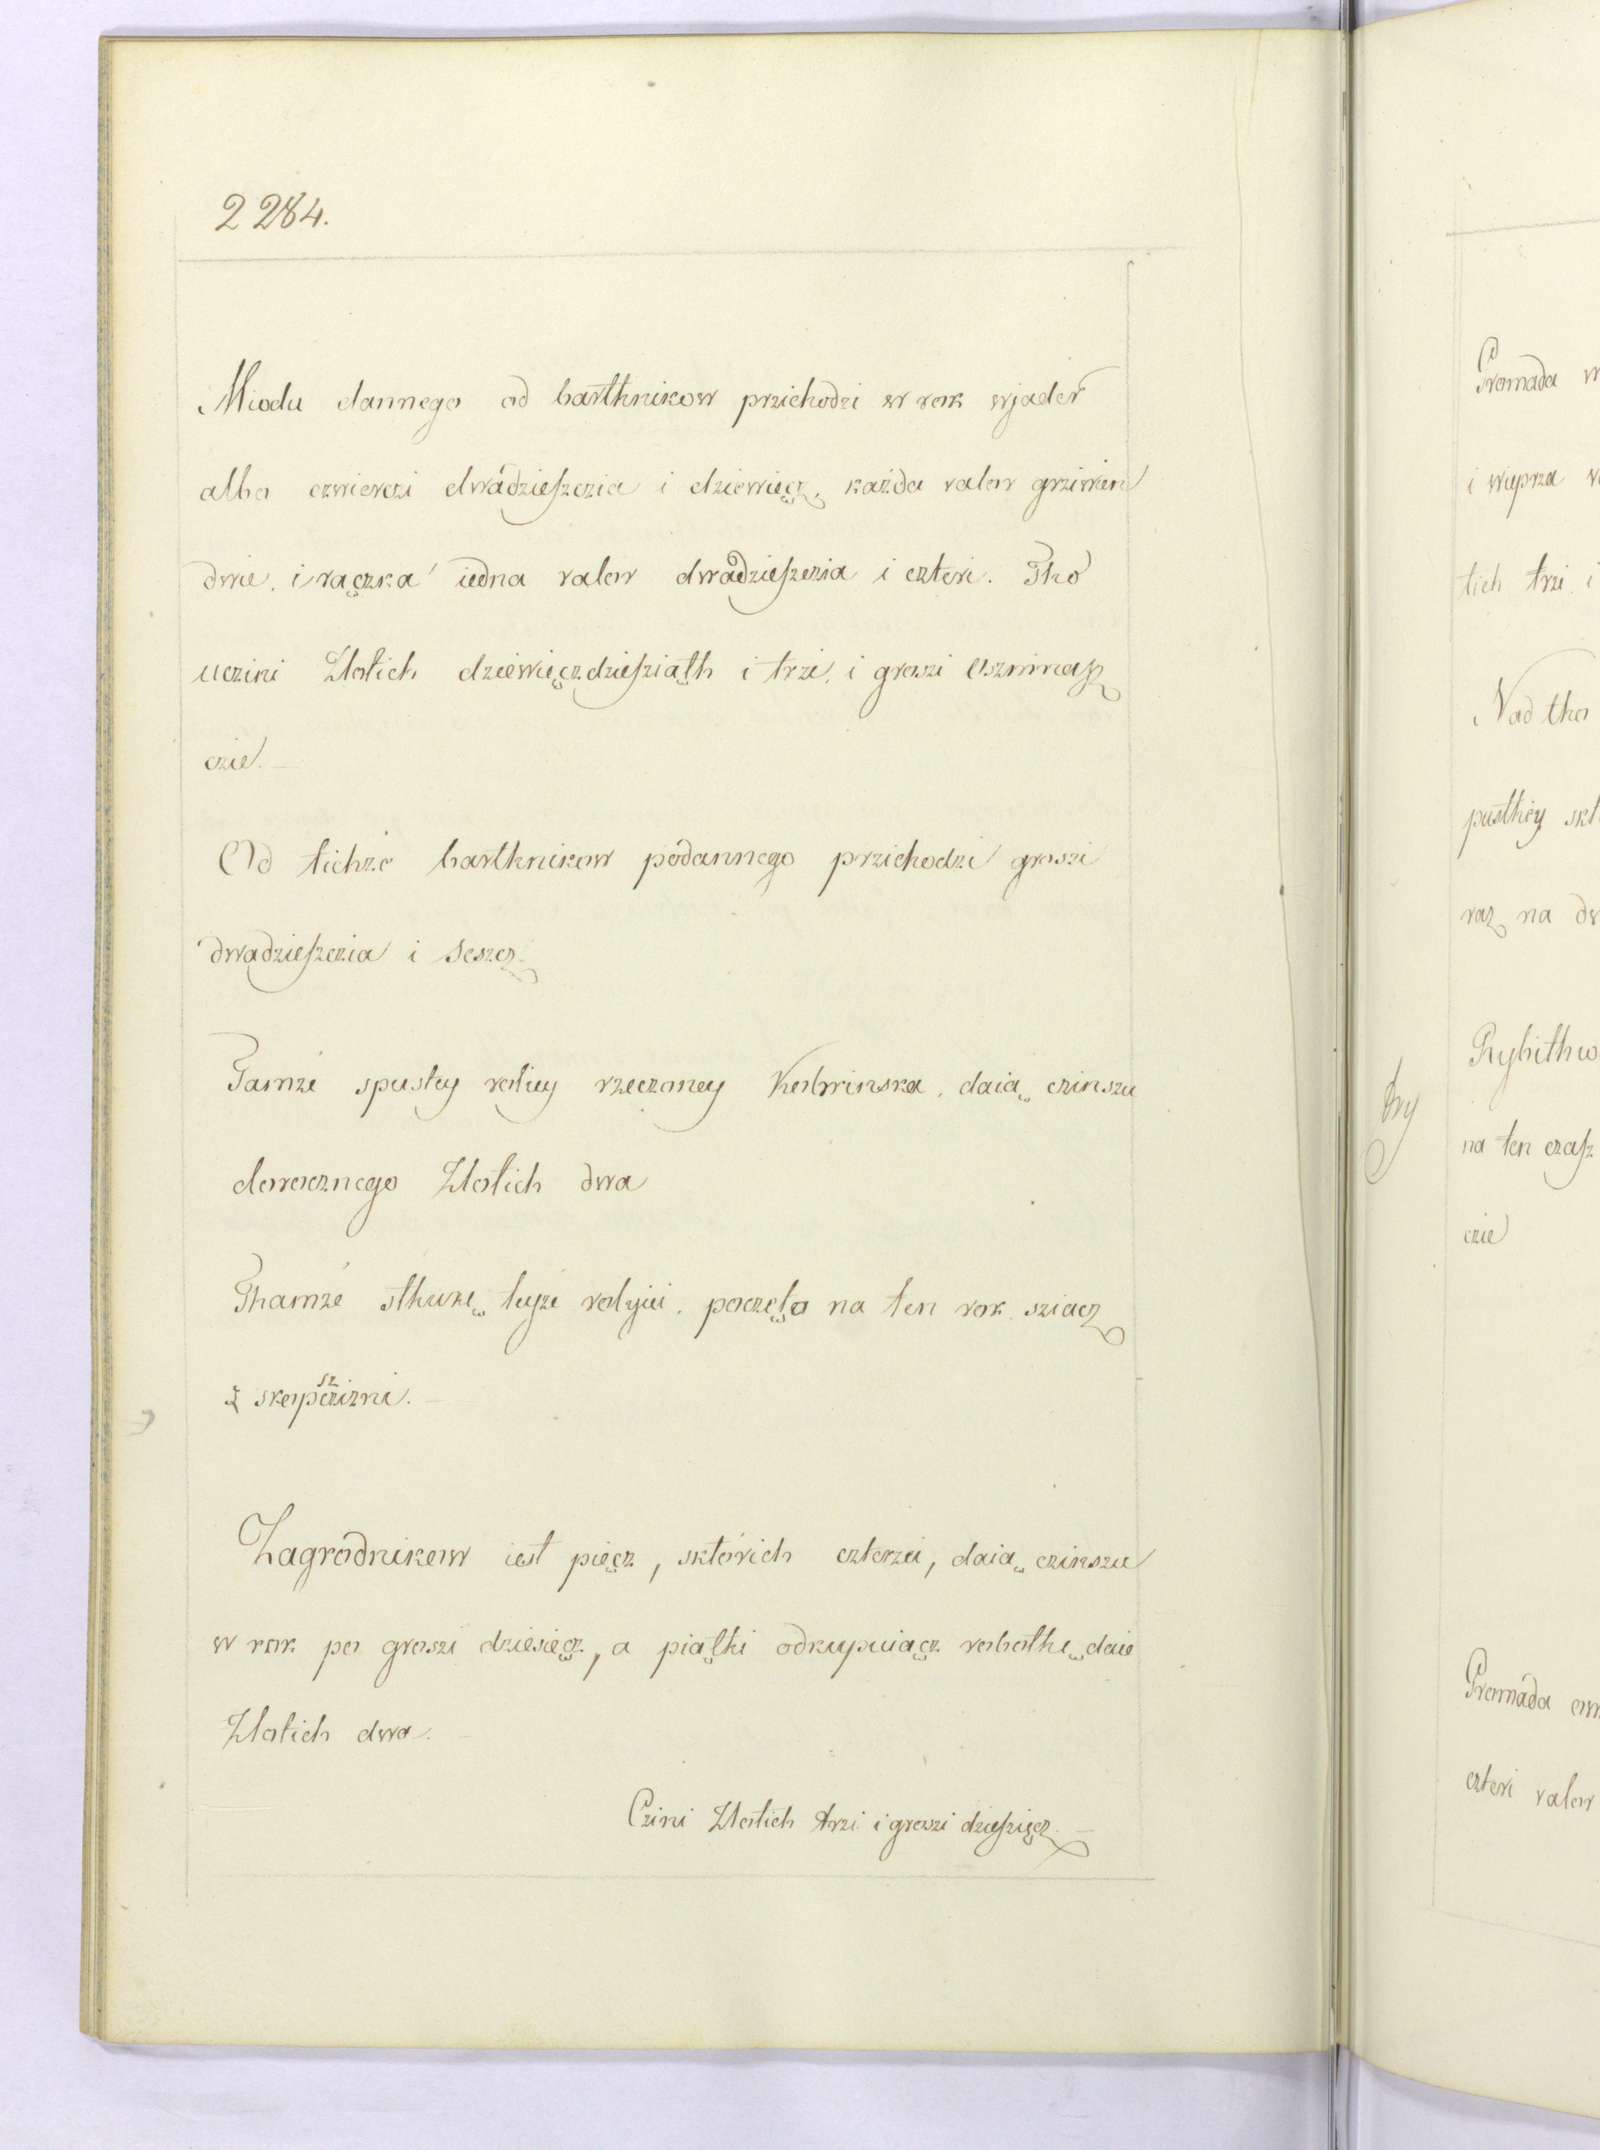 2284.
Miodu dannego od barthnikow przichodzi w rok wjader
albo czwierczi dwadzieszczia i dziewięcz, każda valor grziwien
dwie. i rączka iedna valor dwadzieszczia i czteri. Tho
uczini Zlotich dziewięczdziesziąth i trzi. i groszi osmnasz
czie.
Od tichże barthnikow podannego przichodzi groszi
dwadzieszczia i szescz
Tamże spustey roliey rzeczoney daią czinszu
dorocznego Zlotich dwa
Thamże sthukę teyże roliyi. poczęto na ten rok sziacz
z skopczizni.
sz
Zagrodnikow iest pięcz, sktórich czterzei, daią czinszu
w rok po groszi dziesięcz, a piąthi odkupuiącz robothę daie
Zlotich dwa.
Czini Zlotich trzi i groszi dzieszięcz.
Gromada
i wieprza
tich trzi. i
Nad tho
pusthey
raz na
Rybithw
try
na ten czasz
czie
Gromada
czteri valor